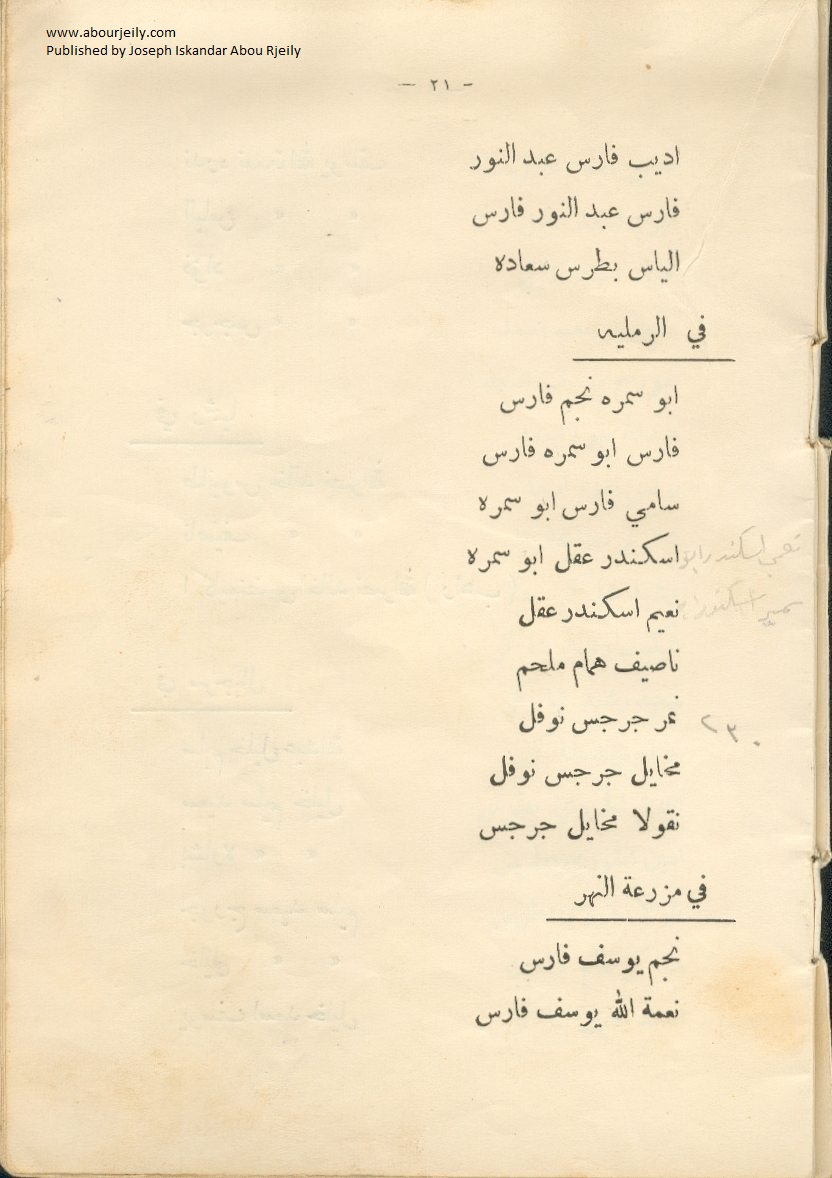 www.abourjeily.com
Published by Joseph Iskandar Abou Rjeily
- ٢١ -
اديب فارس عبد النور
فارس عبد النور فارس
الياس بطرس سعاده
في الرمليه
ابو سمره نجم فارس
فارس ابو سمره فارس
سامي فارس ابو سمره
اسكندر عقل ابو سمره
نعيم اسكندر عقل
سمير اسكندر
ناصيف همام ملحم
نمر جرجس نوفل
٢٣٠
مخايل جرجس نوفل
نقولا مخايل جرجس
في مزرعة النهر
نجم يوسف فارس
نعمة الله يوسف فارس